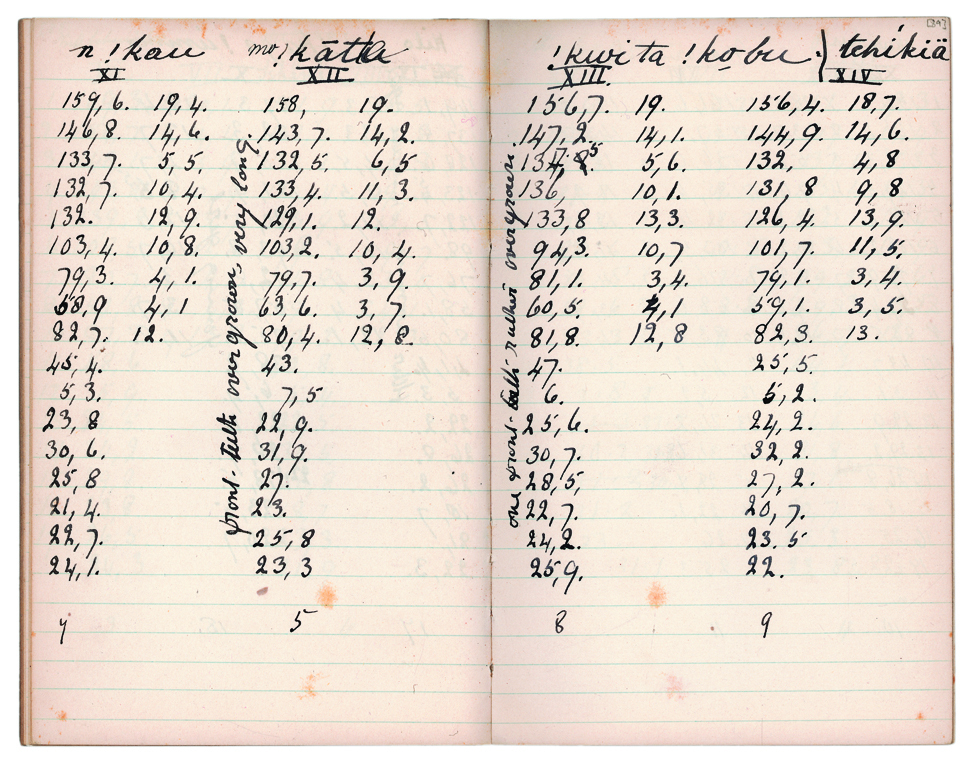 [39]
n!kau mo) kātla !kwita !kobu. tchikiä
XI XII XIII. XIV
159,6. 19,4. 158, 19. 156,7. 19. 156,4. 18,7.
146,8. 14,6. 143,7. 14,2. 147,2. 14,1. 144,9. 14,6.
133,7. 5,5. 132,5. 6,5 5,6. 132. 4,8
132,7. 10,4. 133,4. 11,3. 136, 10,1. 131,8 9,8
132. 12,9. 129,1. 12. 133,8 13,3. 126,4. 13,9.
103,4. 10,8. 103,2. 10,4. 94,3. 10,7 101,7. 11,5.
79,3. 4,1. 79,7. 3,9. 81,1. 3,4. 79,1. 3,4.
58,9 4,1 63,6. 3,7. 60,5. 4,1 59,1. 3,5.
82,7. 12. 80,4. 12,8. 81,8. 12,8 82,3. 13.
45,4. 43. 47. 25,5.
5,3. 7,5 6. 5,2.
23,8 22,9. 25,6. 24,2.
30,6. 31,9. 30,7. 32,2.
25,8 27. 28,5, 27,2.
21,4. 23. 22,7. 20,7.
22,7. 25,8 24,2. 23.5
24,1. 23,3 25,9. 22.
front-teeth overgrown, very long.
one front-tooth rather overgrown.
5 8 9